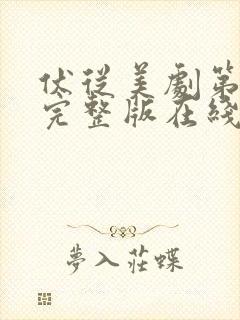 伏從美劇第
完整版在綫
夢入莊蝶